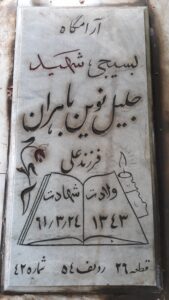 آرامگاه
بسیجی شهید
جلیل نوین باهران
فرزند علی
ولادت شهادت
۱۳۴۳ ۶۱/۳/۲۴
قطعه ۲۶ ردیف ۵۴ شماره ۴۲